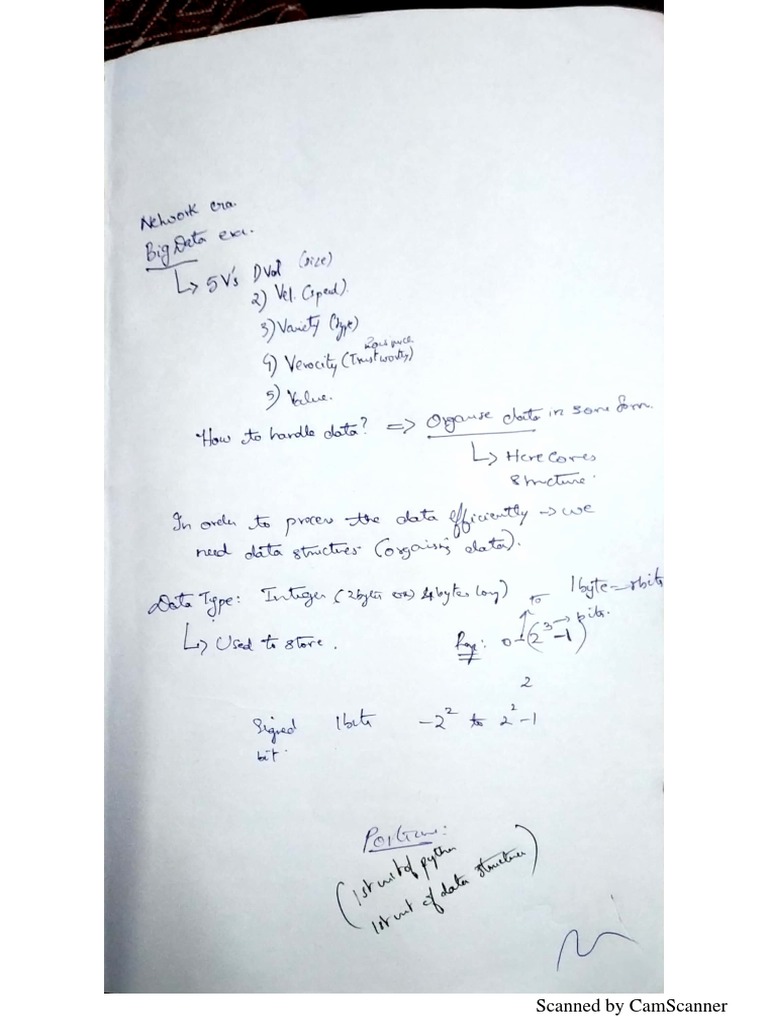 Network era.
Big Data era.
↳ 5V's 1) Vol (size)
2) Vel. (speed).
3) Variety (type)
4) Verocity (Trustworthy)
5) Value.
How to handle data? => Organise data in some form.
↳ Here comes
structure.
In order to process the data efficiently → we
need data structures (organising data).
Data Type: Integer (2 bytes (or) 4 bytes long) 1 byte = 8 bits
↳ Used to store.
0 to (2³ - 1) → bits.
2
Signed 1 bits -2² to 2² - 1
bit.
Portion:
(1st unit of python
1st unit of data structure)
Scanned by CamScanner